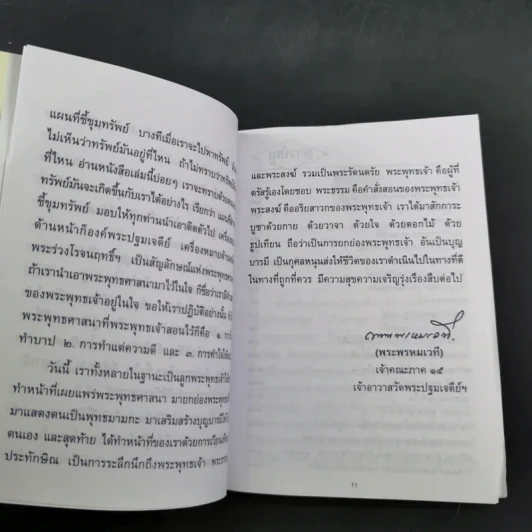 แผนที่ชี้ขุมทรัพย์ บางทีเมื่อเราจะไปหาทรัพย์
ไม่เห็นว่าทรัพย์มันอยู่ที่ไหน ถ้าไม่ทราบว่าทรัพย์
ที่ไหน อ่านหนังสือเล่มนี้บ่อยๆ เราจะทราบด้วย
ทรัพย์มันจะเกิดขึ้นกับเราได้อย่างไร เรียกว่า
ชี้ขุมทรัพย์ มอบให้ทุกท่านนำเอาติดตัวไป
ด้านหน้าก็องค์พระปฐมเจดีย์ เครื่องหมายด้าน
พระร่วงโรจนฤทธิ์ฯ เป็นสัญลักษณ์แห่งพระพุทธ
ถ้าเรานำเอาพระพุทธศาสนามาไว้ในใจ ก็ชื่อว่าเรา
ของพระพุทธเจ้าอยู่ในใจ ขอให้เราปฏิบัติอย่างนั้น
พระพุทธศาสนาที่พระพุทธเจ้าสอนไว้ก็คือ ๑.
ทำบาป ๒. การทำแต่ความดี และ ๓. การทำ
วันนี้ เราทั้งหลายในฐานะเป็นลูกพระพุทธเจ้า
ทำหน้าที่เผยแพร่พระพุทธศาสนา มายกย่องพระพุทธ
มาแสดงตนเป็นพุทธมามกะ มาเสริมสร้างบุญบารมี
ตนเอง และสุดท้าย ได้ทำหน้าที่ของเราด้วยการเวียน
ประทักษิณ เป็นการระลึกนึกถึงพระพุทธเจ้า พระธรรม
และพระสงฆ์ รวมเป็นพระรัตนตรัย พระพุทธเจ้า คือผู้ที่
ตรัสรู้เองโดยชอบ พระธรรม คือคำสั่งสอนของพระพุทธเจ้า
พระสงฆ์ คืออริยสาวกของพระพุทธเจ้า เราได้มาสักการะ
บูชาด้วยกาย ด้วยวาจา ด้วยใจ ด้วยดอกไม้ ด้วย
ธูปเทียน ถือว่าเป็นการยกย่องพระพุทธเจ้า อันเป็นบุญ
บารมี เป็นกุศลหนุนส่งให้ชีวิตของเราดำเนินไปในทางที่ดี
ในทางที่ถูกที่ควร มีความสุขความเจริญรุ่งเรืองสืบต่อไป
(พระพรหมเวที)
เจ้าคณะภาค ๑๕
เจ้าอาวาสวัดพระปฐมเจดีย์ฯ
11